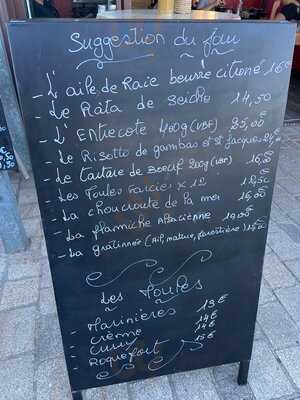 Suggestion du jour
- L'aile de Raie beurre citroné 16€
- Le Rata de Seiche 14,50
- L'Entrecote 400g (VBF) 25,00€
- Le Risotto de gambas et St Jacques
- Le tartare de boeuf 200g (VBF) 16,50
- Les Moules Farcies x 12 12,50€
- La choucroute de la mer
- La flamiche Alsacienne
- La gratinnée
Les Moules
- Marinières 13€
- Crème 14€
- Curry 14€
- Roquefort 15€